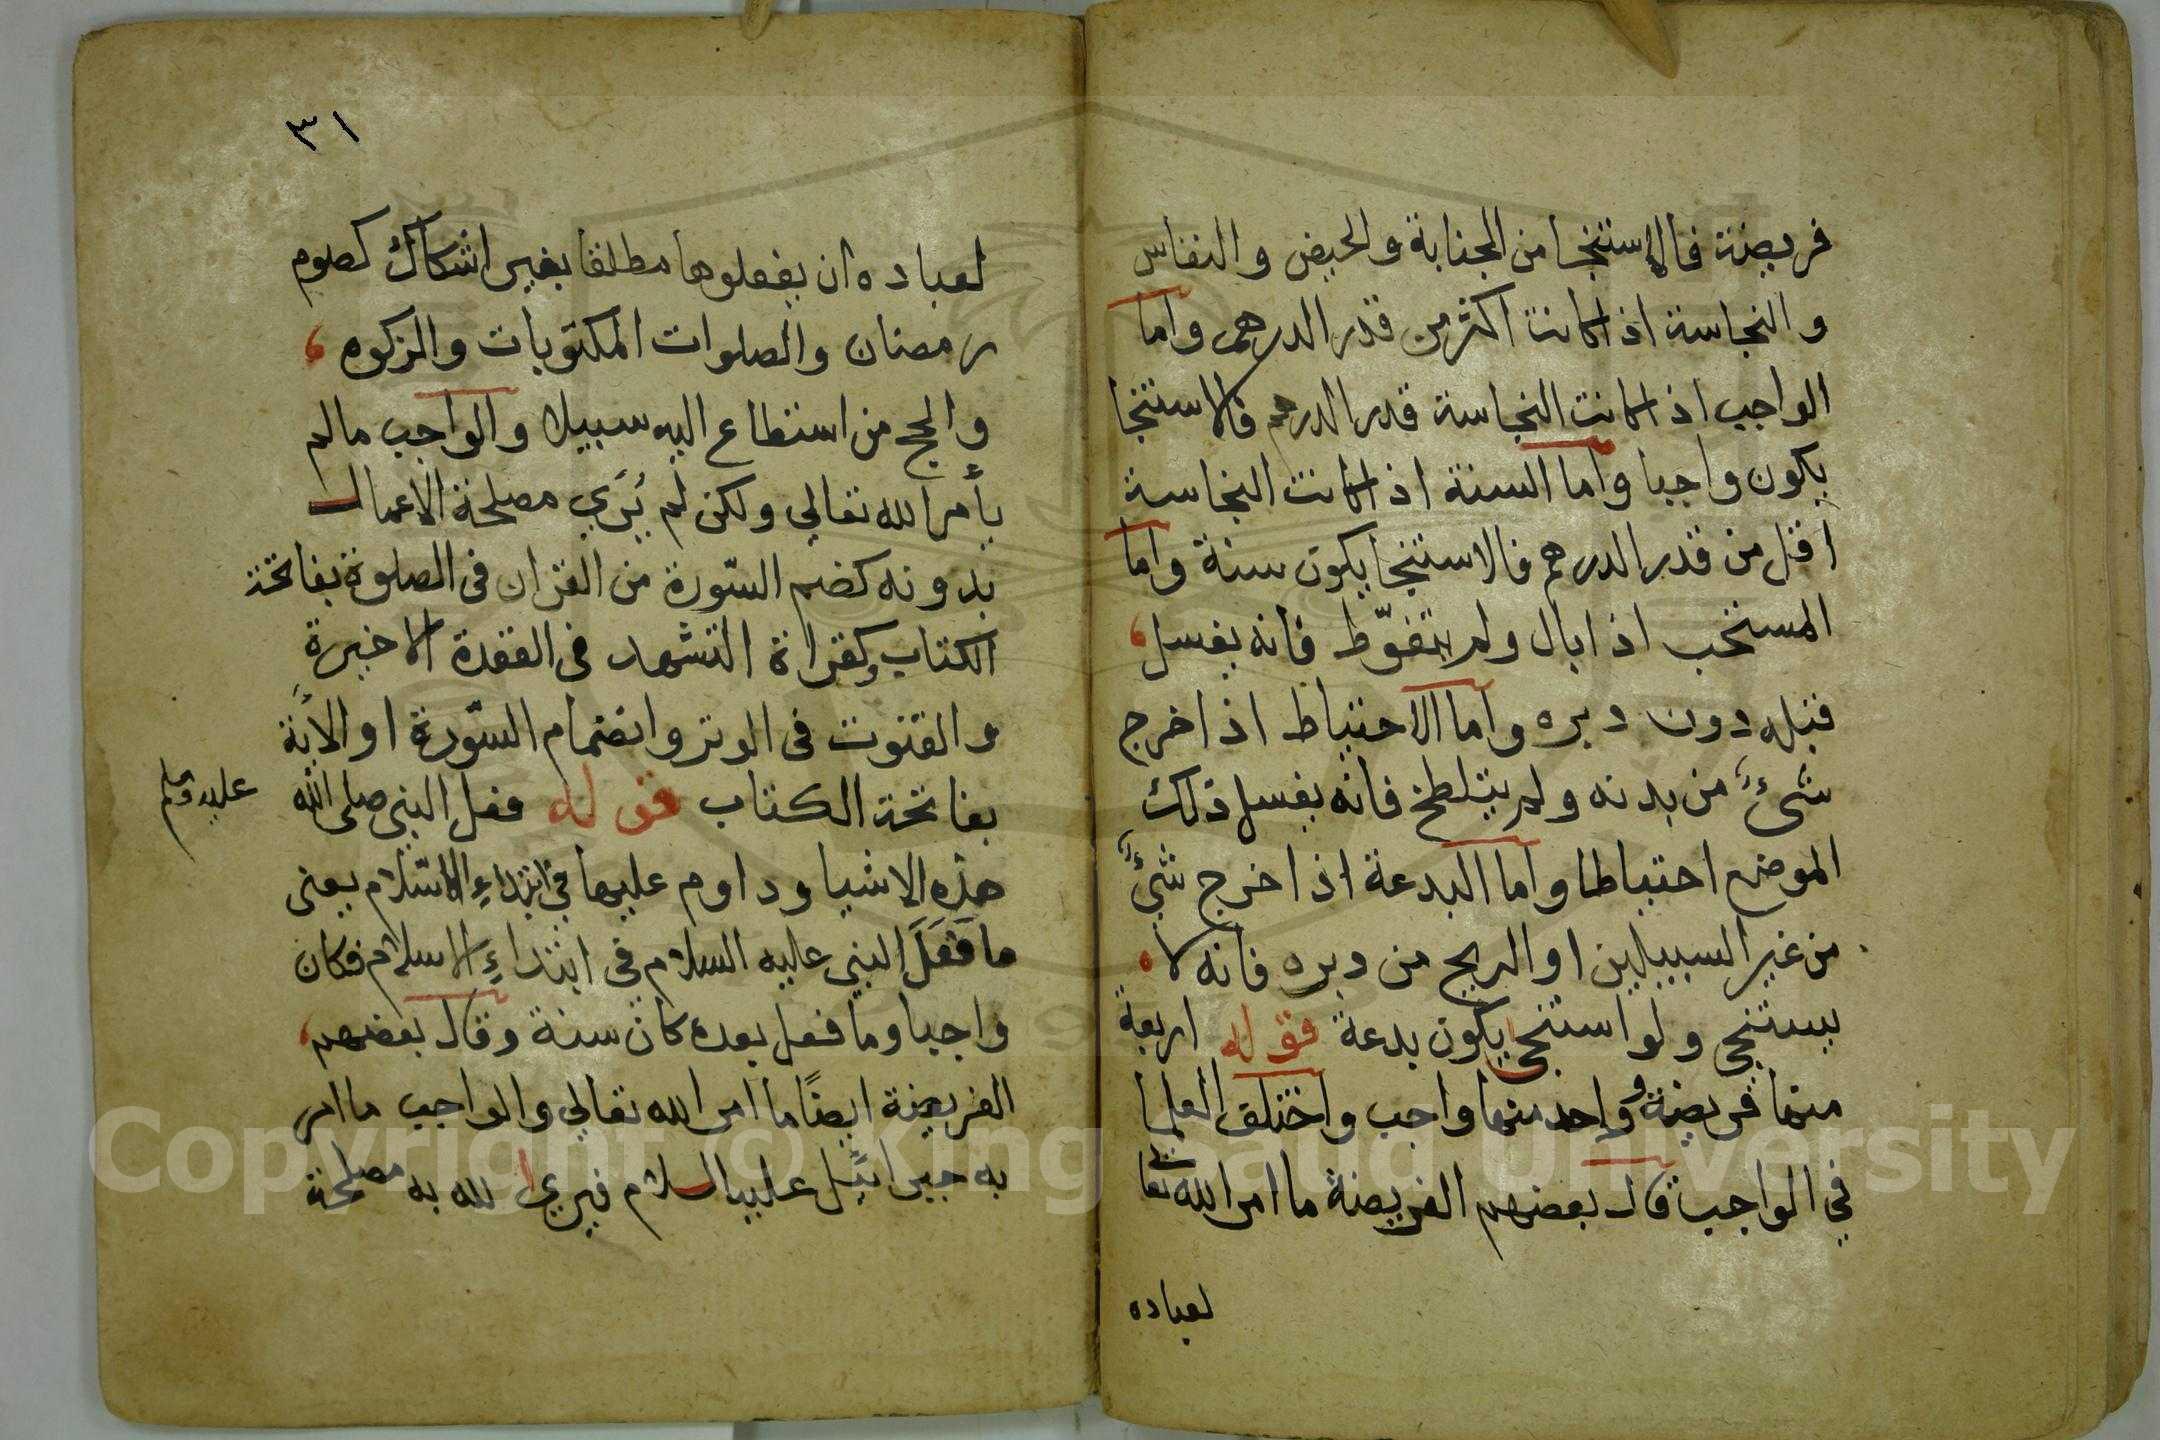 فريضة فالاستنجا من الجنابة والحيض والنفاس
والنجاسة اذا كانت اكثر من قدر الدرهم واما
الواجب اذا كانت النجاسة قدر الدرهم فالاستنجا
يكون واجبا واما السنة اذا كانت النجاسة
اقل من قدر الدرهم فالاستنجا يكون سنة واما
المستحب اذا بال ولم يتغوّط فانه يغسل
قبله دون دبره واما الاحتياط اذا خرج
شئ من بدنه ولم يتلطخ فانه يغسل ذلك
الموضع احتياطا واما البدعة اذا خرج شئ
من غير السبيلين او الريح من دبره فانه لا
يستنجي ولو استنجي يكون بدعة قوله اربعة
منها فريضة وواحد منها واجب واختلف العلما
في الواجب قال بعضهم الفريضة ما امر الله تعا
لعباده
٣١
لعباده ان يفعلوها مطلقا بغير اشكاك كصوم
رمضان والصلوات المكتوبات والزكوة
والحج من استطاع اليه سبيلا والواجب مالم
يأمر الله تعالي ولكن لم يُرَي مصلحة الاعمال
بدونه كضم السّورة من القران في الصلوة بفاتحة
الكتاب وكقراة التشهد في القعدة الاخيرة
والقنوت في الوتر وانضمام السّورة او الاية
بفاتحة الكتاب قوله فعل النبي صلى الله
عليه وسلم
هذه الاشيا وداوم عليها في ابتداء الاسّلام يعني
ما فَعَلَ النبي عليه السلام في ابتداء الاسلام فكان
واجبا وما فعل بعده كان سنة وقال بعضهم
الفريضة ايضًا ما امر الله تعالي والواجب ما امر
به جبرائيل عليه السلام فيري الله به مصلحة
Copyright © King Saud University